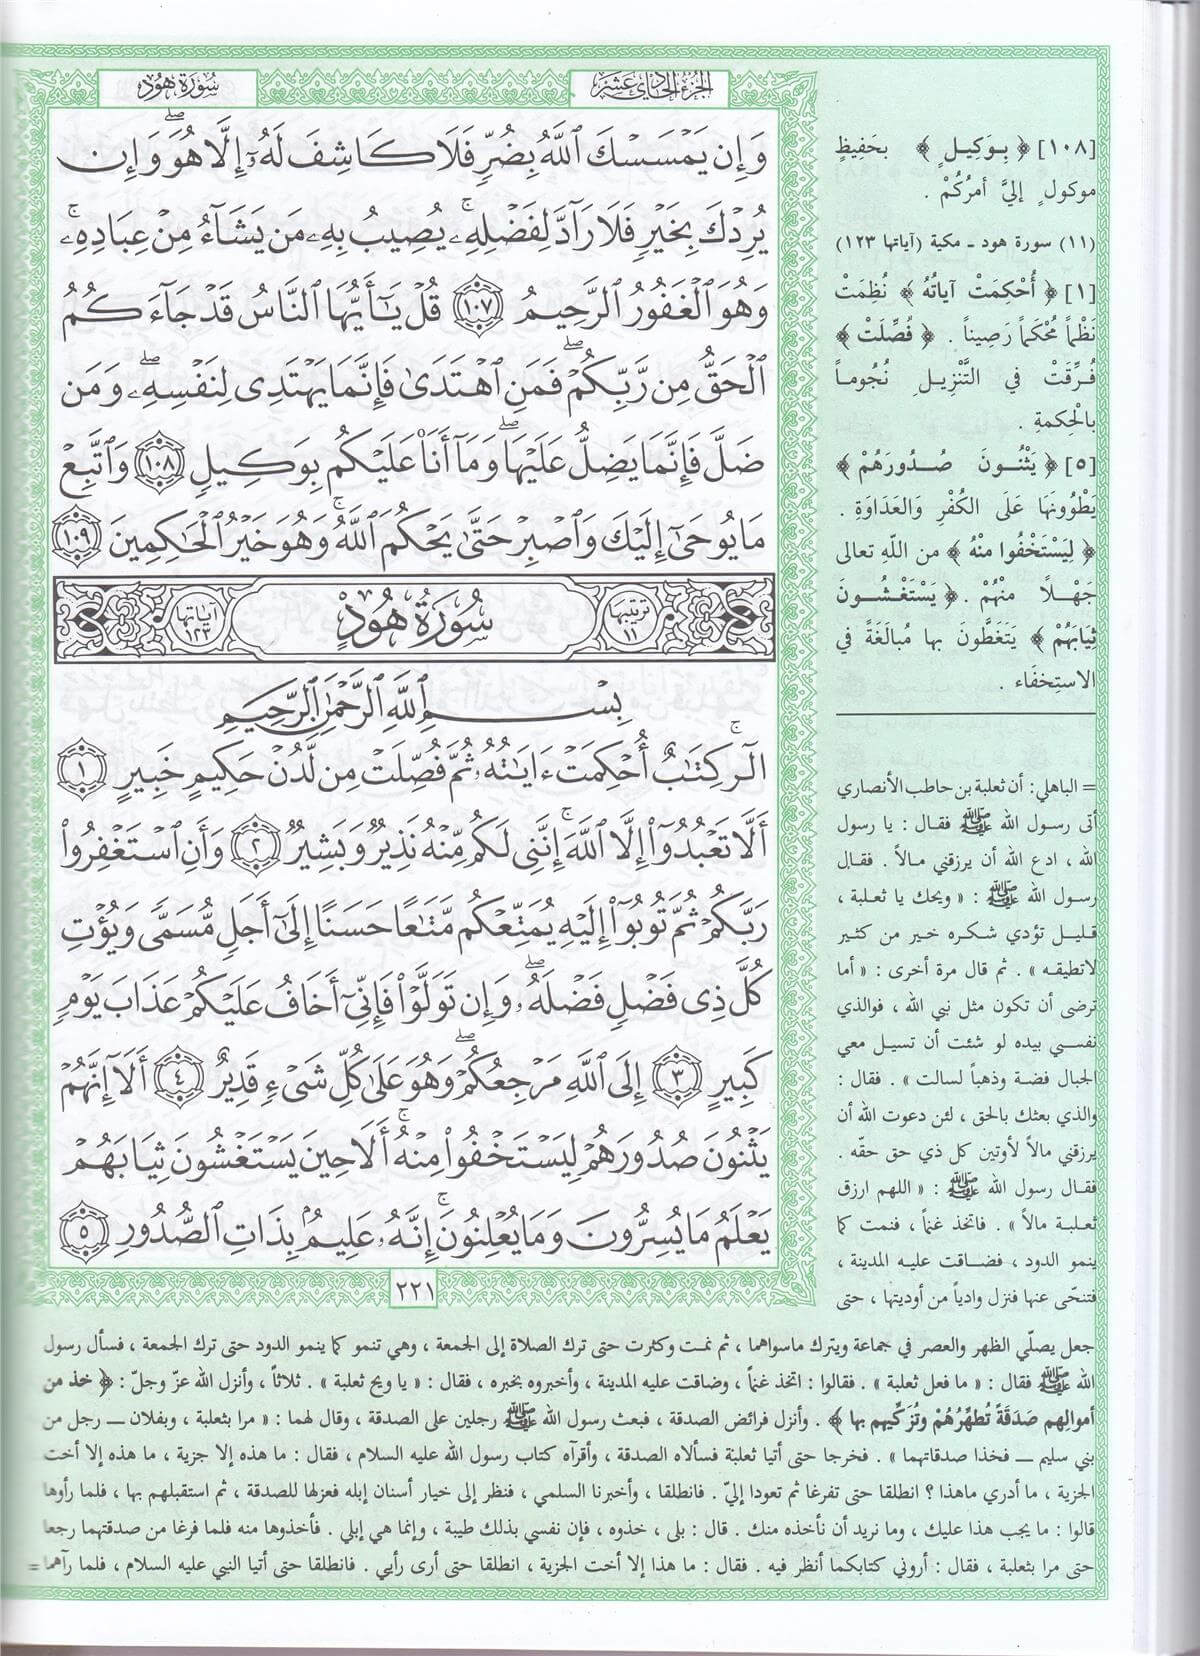 سُورَةُ هُودٍ
الجُزْءُ الحَادِي عَشَرَ
وَإِن يَمْسَسْكَ ٱللَّهُ بِضُرٍّ فَلَا كَاشِفَ لَهُۥٓ إِلَّا هُوَ ۖ وَإِن
يُرِدْكَ بِخَيْرٍ فَلَا رَآدَّ لِفَضْلِهِۦ ۚ يُصِيبُ بِهِۦ مَن يَشَآءُ مِنْ عِبَادِهِۦ ۚ
وَهُوَ ٱلْغَفُورُ ٱلرَّحِيمُ ١٠٧ قُلْ يَـٰٓأَيُّهَا ٱلنَّاسُ قَدْ جَآءَكُمُ
ٱلْحَقُّ مِن رَّبِّكُمْ ۖ فَمَنِ ٱهْتَدَىٰ فَإِنَّمَا يَهْتَدِى لِنَفْسِهِۦ ۖ وَمَن
ضَلَّ فَإِنَّمَا يَضِلُّ عَلَيْهَا ۖ وَمَآ أَنَا۠ عَلَيْكُم بِوَكِيلٍ ١٠٨ وَٱتَّبِعْ
مَا يُوحَىٰٓ إِلَيْكَ وَٱصْبِرْ حَتَّىٰ يَحْكُمَ ٱللَّهُ ۚ وَهُوَ خَيْرُ ٱلْحَـٰكِمِينَ ١٠٩
ترتيبها ١١ سُورَةُ هُودٍ آياتها ١٢٣
بِسْمِ ٱللَّهِ ٱلرَّحْمَـٰنِ ٱلرَّحِيمِ
الٓر ۚ كِتَـٰبٌ أُحْكِمَتْ ءَايَـٰتُهُۥ ثُمَّ فُصِّلَتْ مِن لَّدُنْ حَكِيمٍ خَبِيرٍ ١
أَلَّا تَعْبُدُوٓا۟ إِلَّا ٱللَّهَ ۚ إِنَّنِى لَكُم مِّنْهُ نَذِيرٌ وَبَشِيرٌ ٢ وَأَنِ ٱسْتَغْفِرُوا۟
رَبَّكُمْ ثُمَّ تُوبُوٓا۟ إِلَيْهِ يُمَتِّعْكُم مَّتَـٰعًا حَسَنًا إِلَىٰٓ أَجَلٍ مُّسَمًّى وَيُؤْتِ
كُلَّ ذِى فَضْلٍ فَضْلَهُۥ ۖ وَإِن تَوَلَّوْا۟ فَإِنِّىٓ أَخَافُ عَلَيْكُمْ عَذَابَ يَوْمٍ
كَبِيرٍ ٣ إِلَى ٱللَّهِ مَرْجِعُكُمْ ۖ وَهُوَ عَلَىٰ كُلِّ شَىْءٍ قَدِيرٌ ٤ أَلَآ إِنَّهُمْ
يَثْنُونَ صُدُورَهُمْ لِيَسْتَخْفُوا۟ مِنْهُ ۚ أَلَا حِينَ يَسْتَغْشُونَ ثِيَابَهُمْ
يَعْلَمُ مَا يُسِرُّونَ وَمَا يُعْلِنُونَ ۚ إِنَّهُۥ عَلِيمٌۢ بِذَاتِ ٱلصُّدُورِ ٥
٢٢١
[١٠٨] ﴿ بِوَكِيلٍ ﴾ بحَفِيظٍ
موكولٍ إليَّ أمرُكُمْ .
(١١) سورة هود ـ مكية (آياتها ١٢٣)
[١] ﴿ أُحْكِمَتْ آياتُهُ ﴾ نُظِمَتْ
نَظْماً مُحْكَماً رَصِيناً . ﴿ فُصِّلَتْ ﴾
فُرِّقَتْ في التَّنْزِيلِ نُجُوماً
بالْحِكمةِ .
[٥] ﴿ يَثْنُونَ صُدُورَهُمْ ﴾
يَطْوُونَهَا عَلَى الكُفْرِ وَالعَدَاوَةِ .
﴿ لِيَسْتَخْفُوا منْهُ ﴾ من اللهِ تعالى
جَهْلاً منْهُمْ . ﴿ يَسْتَغْشُونَ
ثِيَابَهُمْ ﴾ يَتَغَطَّونَ بها مُبالَغَةً في
الاستِخفَاء .
= الباهلي: أن ثعلبة بن حاطب الأنصاري
أتى رسول الله ﷺ فقال : يا رسول
الله ، ادع الله أن يرزقني مالاً . فقال
رسول الله ﷺ : « ويحك يا ثعلبة ،
قليل تؤدي شكره خير من كثير
لاتطيقه » . ثم قال مرة أخرى : « أما
ترضى أن تكون مثل نبي الله ، فوالذي
نفسي بيده لو شئت أن تسيل معي
الجبال فضة وذهباً لسالت » . فقال :
والذي بعثك بالحق ، لئن دعوت الله أن
يرزقني مالاً لأوتين كل ذي حق حقّه .
فقال رسول الله ﷺ : « اللهم ارزق
ثعلبة مالاً » . فاتخذ غنماً ، فنمت كما
ينمو الدود ، فضاقت عليه المدينة ،
فتنحّى عنها فنزل وادياً من أوديتها ، حتى
جعل يصلّي الظهر والعصر في جماعة ويترك ماسواهما ، ثم نمت وكثرت حتى ترك الصلاة إلى الجمعة ، وهي تنمو كما ينمو الدود حتى ترك الجمعة ، فسأل رسول
الله ﷺ فقال : « ما فعل ثعلبة » . فقالوا : اتخذ غنماً ، وضاقت عليه المدينة ، وأخبروه بخبره ، فقال : « يا ويح ثعلبة » . ثلاثاً ، وأنزل الله عزّ وجلّ : ﴿ خذ من
أموالِهم صَدَقَةً تُطَهِّرُهُمْ وتُزَكِّيهم بها ﴾ . وأنزل فرائض الصدقة ، فبعث رسول الله ﷺ رجلين على الصدقة ، وقال لهما : « مرا بثعلبة ، وبفلان ــ رجل من
بني سليم ــ فخذا صدقاتهما » . فخرجا حتى أتيا ثعلبة فسألاه الصدقة ، وأقرآه كتاب رسول الله عليه السلام ، فقال : ما هذه إلا جزية ، ما هذه إلا أخت
الجزية ، ما أدري ماهذا ؟ انطلقا حتى تفرغا ثم تعودا إليّ . فانطلقا ، وأخبرنا السلمي ، فنظر إلى خيار أسنان إبله فعزلها للصدقة ، ثم استقبلهم بها ، فلما رأوها
قالوا : ما يجب هذا عليك ، وما نريد أن نأخذه منك . قال : بلى ، خذوه ، فإن نفسي بذلك طيبة ، وإنما هي إبلي . فأخذوها منه فلما فرغا من صدقتهما رجعا
حتى مرا بثعلبة ، فقال : أروني كتابكما أنظر فيه . فقال : ما هذا إلا أخت الجزية ، انطلقا حتى أرى رأيي . فانطلقا حتى أتيا النبي عليه السلام ، فلما رآهما =